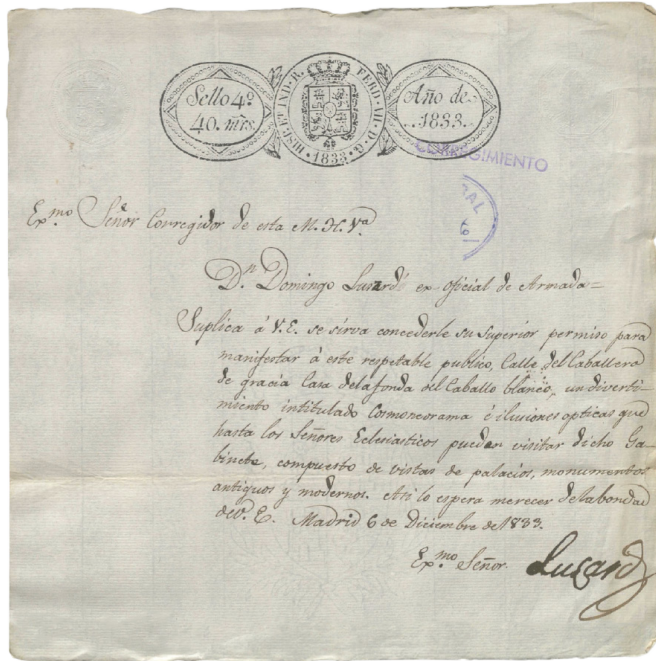 Sello 4º
40. mrs.
HISP. ET IND. R. FERD. VII. D. G. 1833
Año de
1833.
CORREGIMIENTO
Exmo. Señor Corregidor de esta M. H. Va.
Dn. Domingo Lusardi ex oficial de Armada=
Suplica á V.E. se sirva concederle su superior permiso para
manifestar á este respetable publico, Calle del Caballero
de gracia Casa de la fonda del Caballo blanco, un diverti-
miento intitulado Cosmoneorama é ilusiones opticas que
hasta los Señores Eclesiasticos pueden visitar dicho Ga-
binete, compuesto de vistas de palacios, monumentos
antiguos y modernos. Asi lo espera merecer de la bondad
de V. E. Madrid 6 de Diciembre de 1833.
Exmo. Señor.
Lusardi